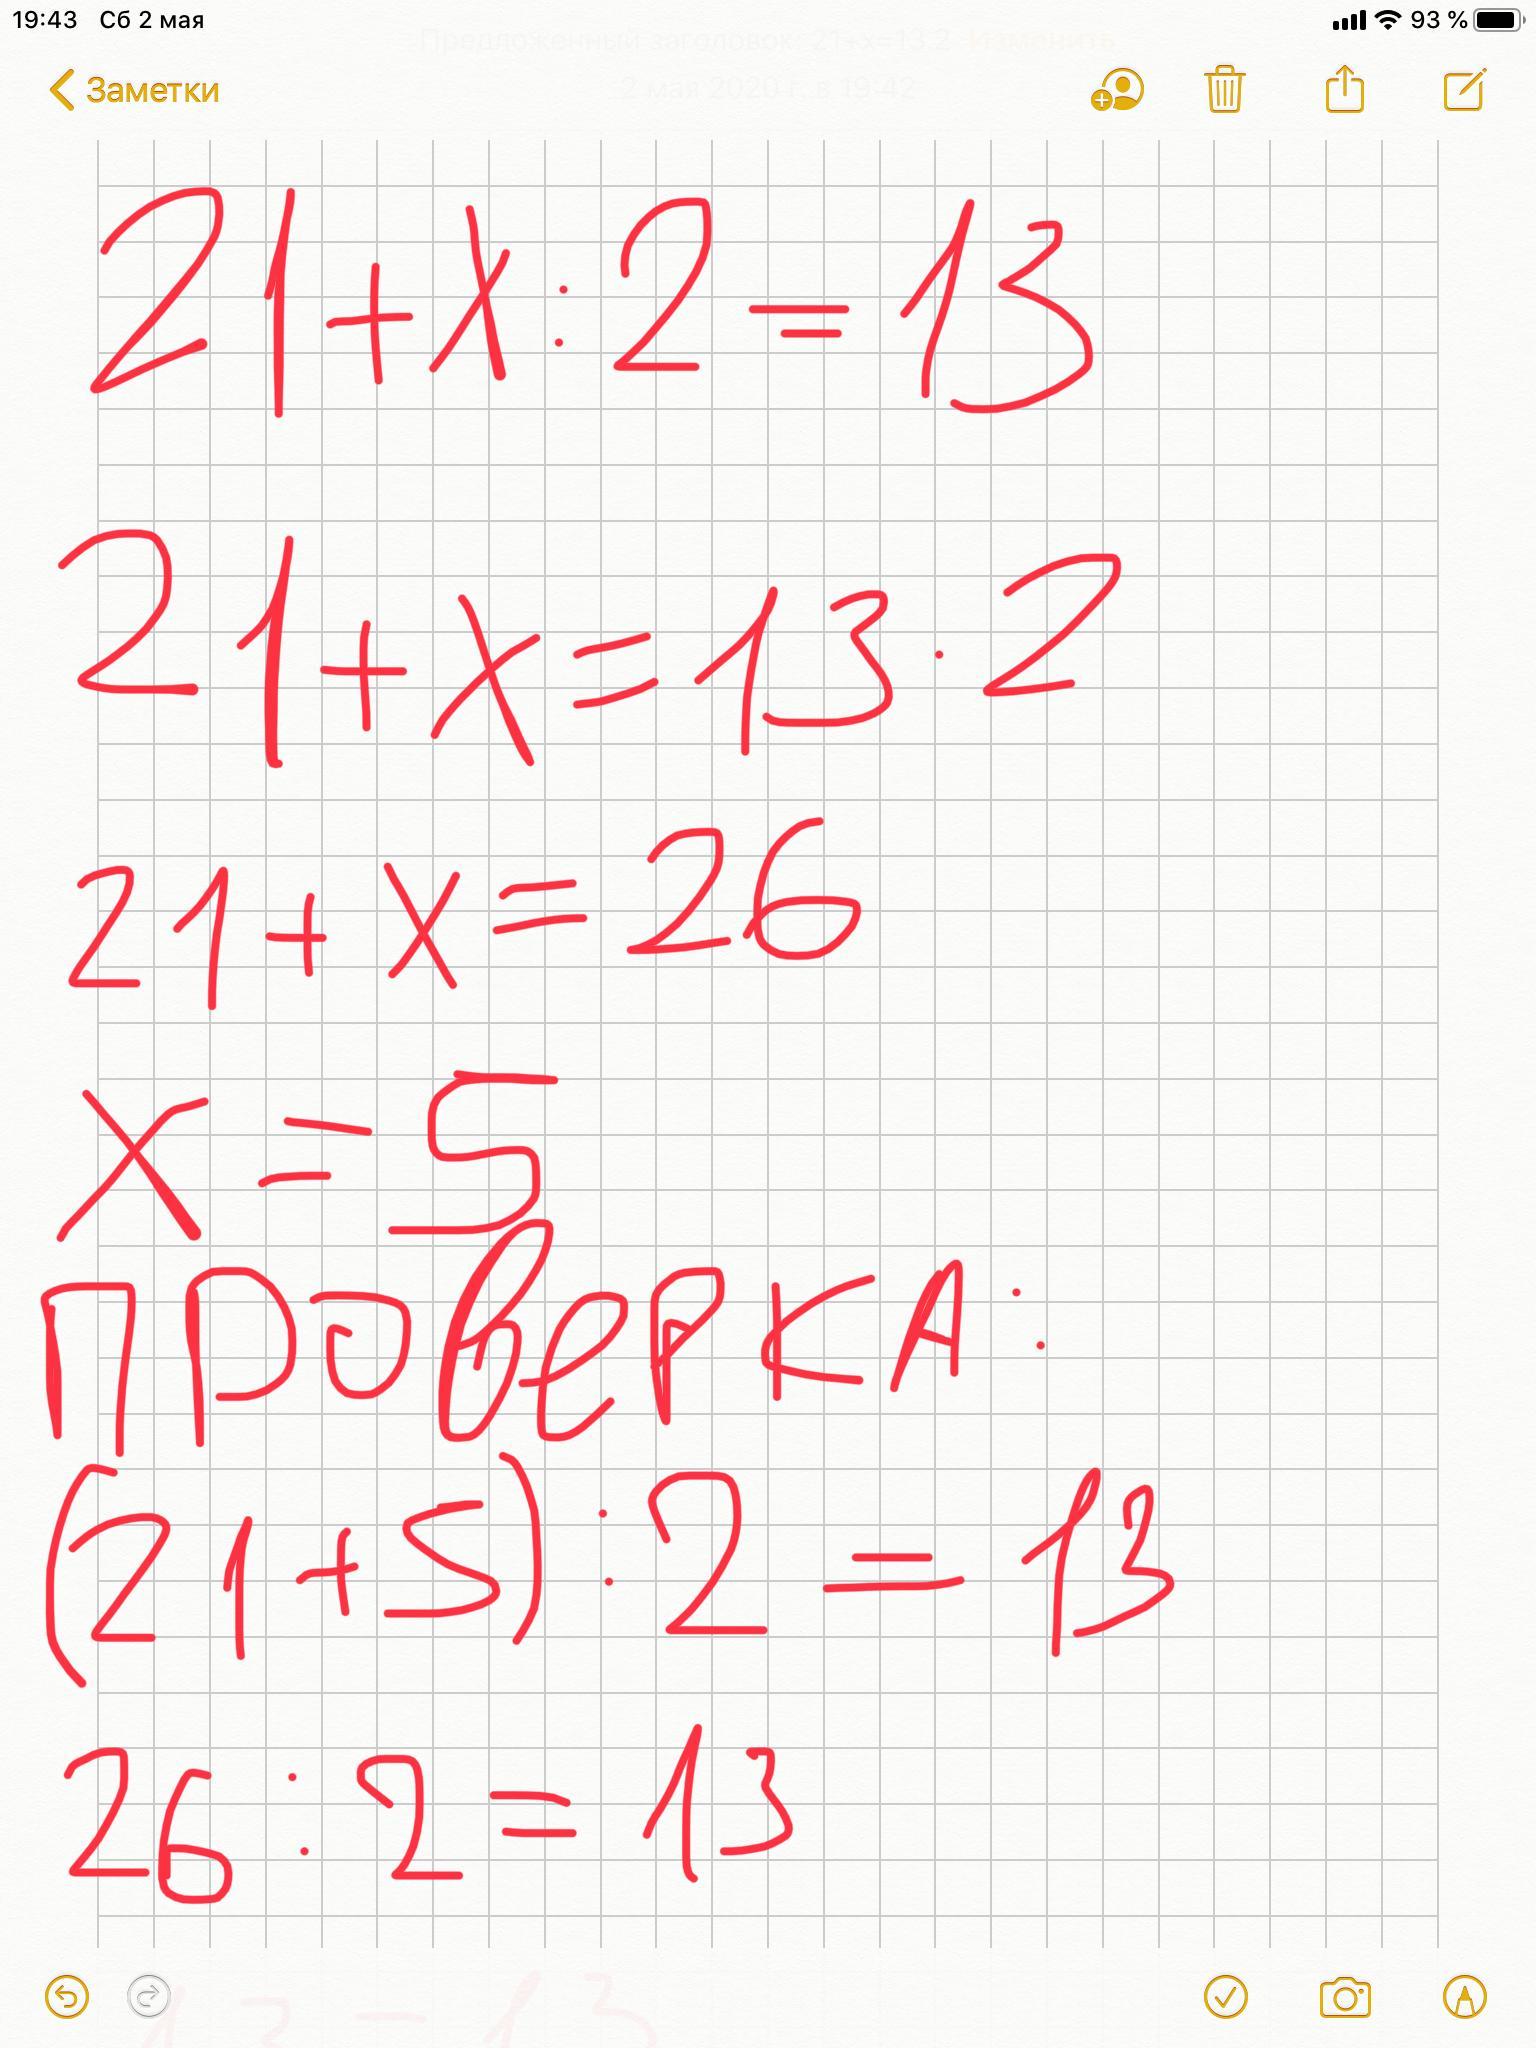 19:43 Сб 2 мая 93 %
Предложенный заголовок: 21+x=13.2 Изменить
Заметки
21+x:2=13
21+x=13·2
21+x=26
x=5
ПРОВеРКА:
(21+5):2=13
26:2=13
13=13